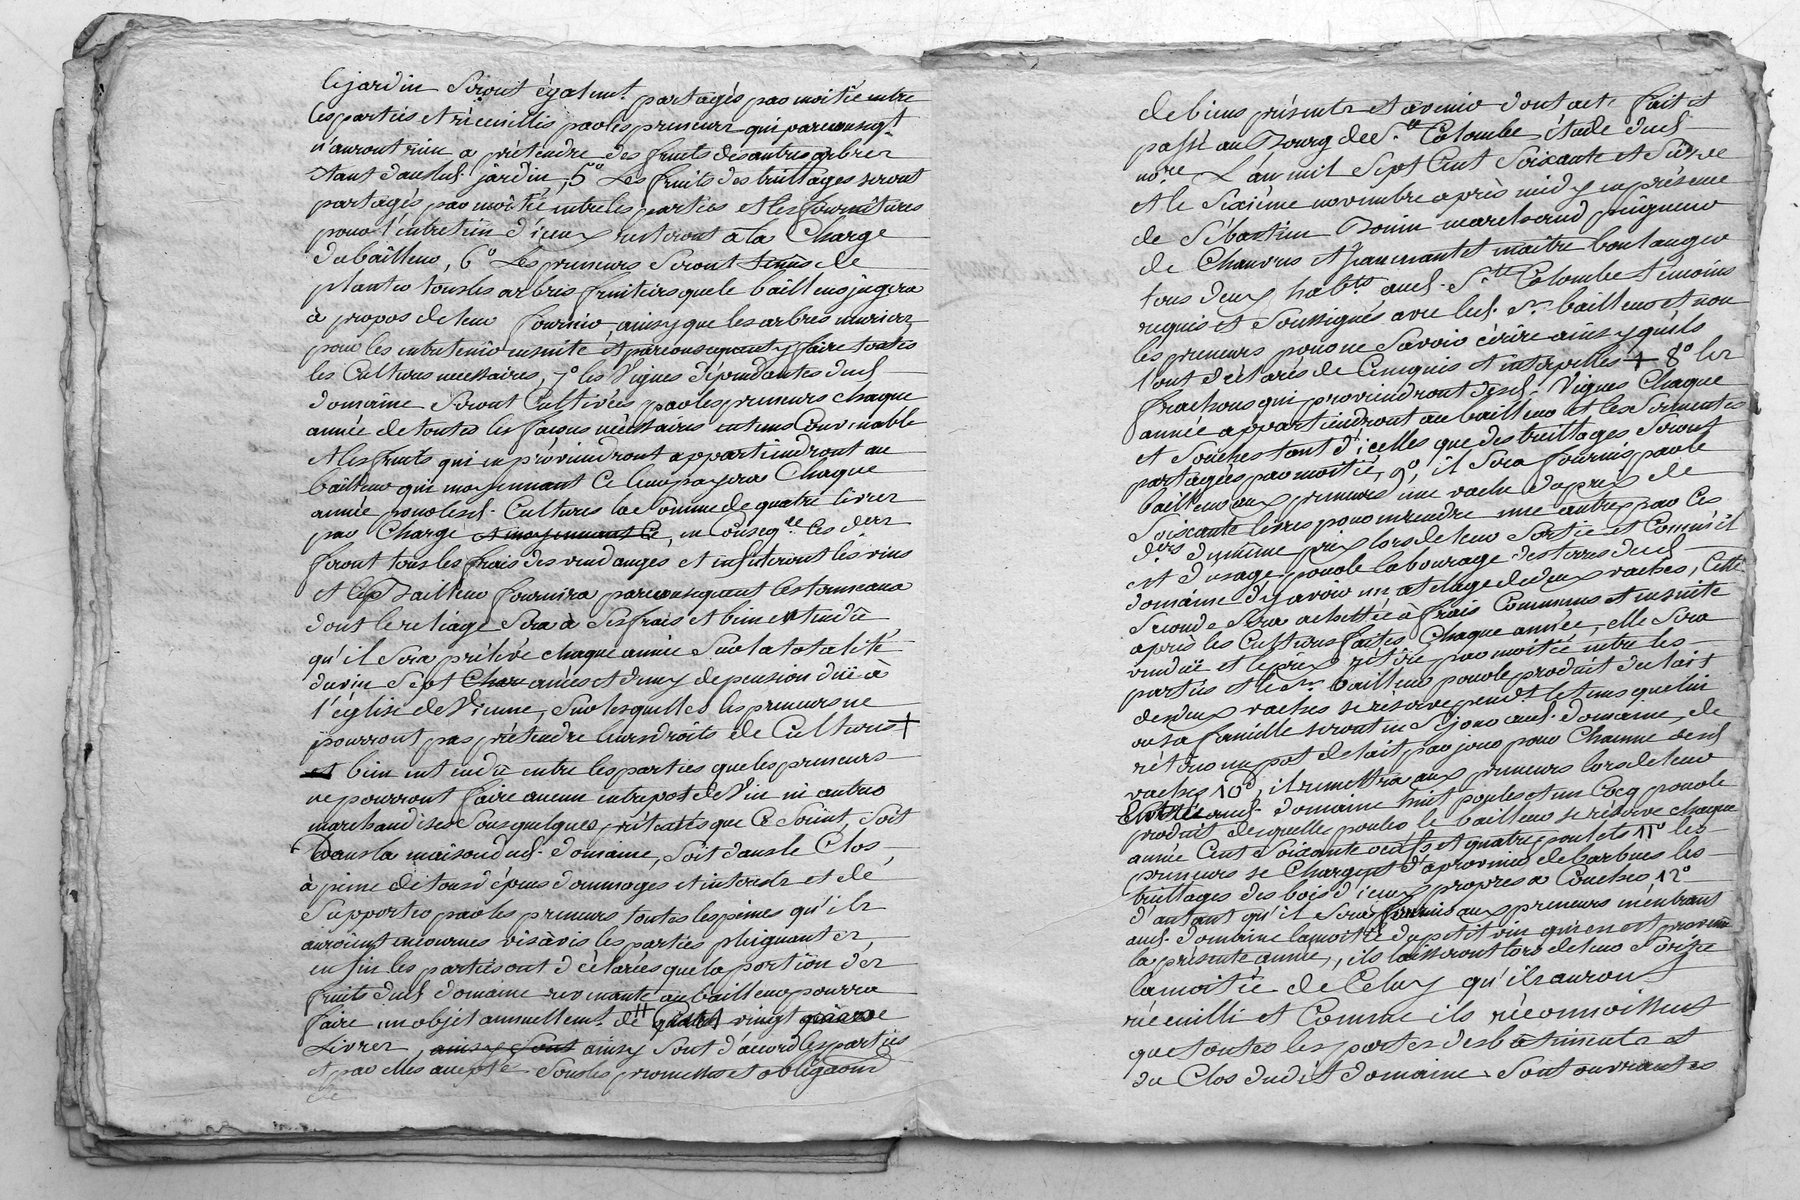 le jardin seront égalemt partagés par moitié entre
les parties et récüeillis par les preneurs qui par conseqt
n'auront rien a prétendre des fruits des autres arbres
étant dans led. jardin, 5° Les fruits des treillages seront
partagés par moitié entre les parties et les fournitures
pour l'entretien d'iceux resteront à la Charge
du bailleur, 6° Les preneurs seront tenus de
planter tous les arbres fruitiers que le bailleur jugera
à propos de leur fournir, ainsy que les arbres muriers
pour les entretenir ensuite et par consequent y faire toutes
les Cultures nécessaires, 7° les Vignes dépendantes dud.
domaine seront Cultivées par les preneurs chaque
année de toutes les façons nécéssaires en tems Convenable
et les fruits qui en proviendront appartiendront au
bailleur qui moyennant Ce leur payera Chaque
année pour lesd. Cultures la somme de quatre livres
par Charge et moyennant Ce, en Conseqce Ces ders
feront tous les frais des vendanges et infuteront les vins
et led Bailleur fournira par consequent les tonneaux
dont le reliage sera à ses frais et bien entendû
qu'il sera prélevé chaque année sur la totalité
du vin sept Char anées et demy de pension düe à
l'église de Vienne, sur lesquelles les preneurs ne
pourront pas prétendre leurs droits de Cultures +
et bien entendu entre les parties que les preneurs
ne pourront faire aucun entrepot de Vin ni autres
marchandises sous quelques prétextes que Ce soient, soit
Dans la maison dud. domaine, soit dans le Clos,
à peine de tous dépens dommages et interets et de
supporter par les preneurs toutes les peines qu'ils
auroient encourues vis à vis les parties plaignantes,
enfin les parties ont déclarées que la portion des
fruits dud domaine revenante au bailleur pourra
faire un objet annuellemt de quatre vingt quinze
Livres ainsy sont ainsy sont d'accord les parties
et par elles accepté sous les promesses et obligaons
de
de biens présents et avenir dont acte fait et
passé au Bourg de Ste Colombe étude dud.
nore L'an mil sept Cent soixante et seize
et le sixième novembre après midy en présence
de Sébastien Bonin marchand peigneur
de Chanvres et Jean mantet maître boulanger
tous deux habts aud. Ste Colombe temoins
requis et soussignés avec led. Sr bailleur et non
les preneurs pour ne savoir écrire ainsy qu'ils
l'ont déclarés de Ce enquis et interpellés + 8° les
frachons qui proviendront desd. Vignes Chaque
année appartiendront au bailleur et les sermentes
et souches tant d'icelles que des treillages seront
partagées par moitié, 9° il sera fournis par le
bailleur aux preneurs une vache du prix de
soixante livres pour en rendre une autre par Ces
ders du même prix lors de leur sortie et Comme il
est d'usage pour le labourage des terres dud.
domaine d'y avoir un atelage de deux vaches, Cette
seconde sera achettée à frais Communs et ensuite
après les Cultures faites Chaque année, elle sera
vendüe et le prix rétiré par moitié entre les
parties et le Sr bailleur pour le produit du lait
des deux vaches se réserve pendt le tems que lui
ou sa famille seront en séjour aud. domaine, de
rétirer un pot de lait par jour pour Chacune desd
vaches 10° il remettra aux preneurs lors de leur
Entrée aud. domaine huit poules et un Cocq pour le
produit desquelles poules le bailleur se réserve chaque
année Cent soixante oeufs et quatre poulets 11° les
preneurs se Chargent d'aprovenir de barbues les
treillages des bois d'iceux propres a Coucher, 12°
d'autant qu'il sera fournis aux preneurs en entrant
aud. domaine la moitié du petit vin qui en est provenu
la présente année, ils laisseront lors de leur sortie
la moitié de Celuy qu'ils auront
récueilli et Comme ils réconnoissent
que toutes les portes des bâtiments et
du Clos dudit domaine sont ouvrantes